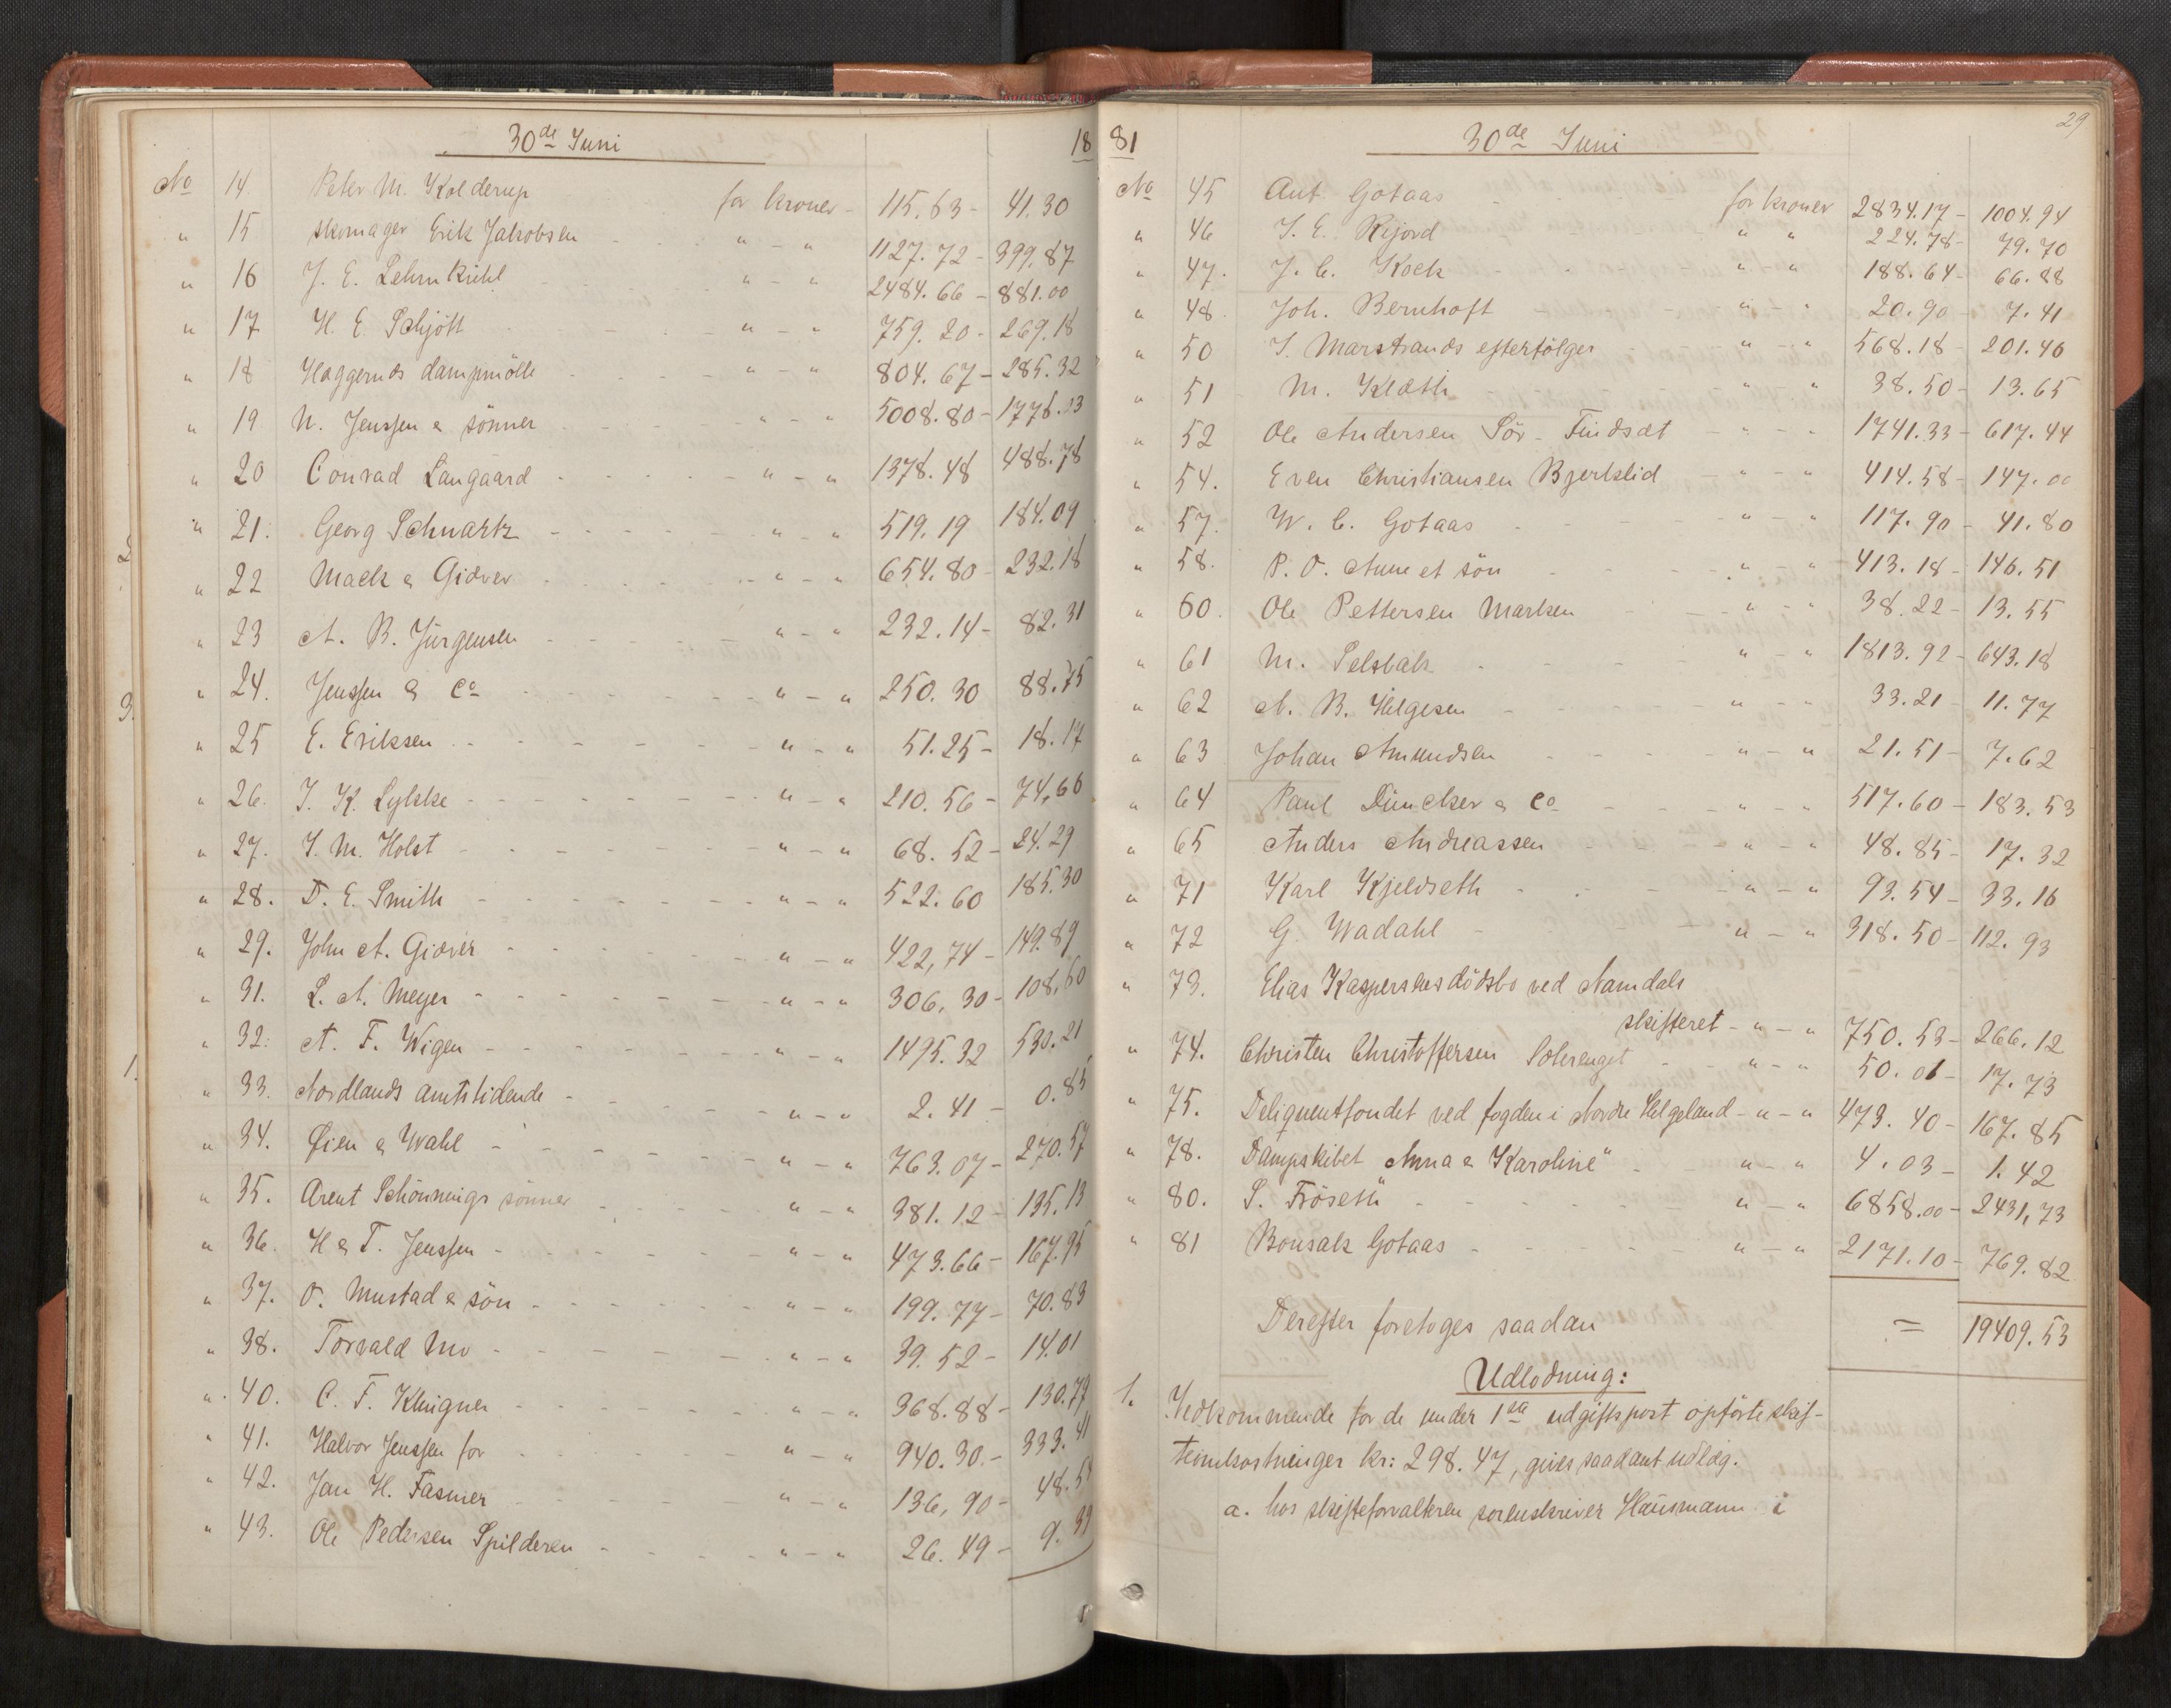 30de Juni 18
No 14 Peter M. Kolderup for kroner - 115.63 - 41.30
" 15 skomager Erik Jakobsen " - " 1127.72 - 399.87
" 16 J. E. Lehmkuhl " - " 2484.66 - 881.00
" 17 H. E Schjött " - " 759.20 - 269.18
" 18 Haggernds dampmölle " - " 804.67 - 285.32
" 19 N. Jenssen & sönner " - " 5008.80 - 1776.03
" 20 Conrad Langaard " - " 1378.48 488.78
" 21. Georg Schwartz " - " 519.19 184.09
" 22 Mack & Giæver " - " 654.80 - 232.18
" 23 A. B. Jürgensen " - " 232.14 - 82.31
" 24. Jenssen & Co " - " 250.30 88.75
" 25 E. Eriksen " - " 51.25 - 18.17
" 26. J. K. Lykke " - " 210.56 - 74,66
" 27. J. M. Holst " - " 68.52 - 24.29
" 28. D. E. Smith " - " 522.60 185.30
" 29. John A. Giæver " - " 422,74 - 149.89
" 31. L. A. Meyer " - " 306,30 - 108,60
" 32. A. F. Wigen " - " 1495.32 530.21
" 33. Nordlands amtstidende " - " 2.41 - 0.85
" 34. Øien & Wahl " - " 763.07 - 270.57
" 35. Arent Schönnings sönner " - " 381.12 - 135.13
" 36. H & T. Jenssen " - " 473.66 - 167.95
" 37. O. Mustad & sön " - " 199.77 - 70.83
" 38. Torvald Mo " - " 39.52 - 14.01
" 40. C. F. Klingner " - " 368.88 - 130.79
" 41. Halvor Jenssen for " - " 940.30 - 333.41
" 42. Jan H. Fasmer " - " 136,90 - 48.54
" 43. Ole Pedersen Spilderen " - " 26.49 - 9.39
2.
3.
1.
81 30de Juni 29
No 45 Ant Gotaas for kroner 2834.17 - 1004.94
" 46 J. E. Rijord " " 224.78 - 79.70
" 47. J. C. Kock " - " 188.64 - 66.88
" 48. Joh. Bernhoft " - " 20.90 - 7.41
" 50 J. Marstrands efterfölger " - " 568.18 - 201.46
" 51 M. Klæth " - " 38.50 - 13.65
" 52 Ole Andersen Sör-Findsæt " - " 1741.33 - 617.44
" 54. Even Christiansen Bjerkslid " - " 414.58 - 147.00
" 57. W. C. Gotaas " - " 117.90 - 41.80
" 58. P. O. Aune et sön " - " 413.18 - 146.51
" 60. Ole Pettersen Marken " - " 38.22 - 13.55
" 61 M. Selsbak " - " 1813.92 - 643.18
" 62 A. B. Helgesen " - " 33.21 - 11.77
" 63 Johan Amundsen " - " 21.51 - 7.62
" 64 Paul Düncker & Co " - " 517.60 - 183.53
" 65 Anders Andreassen " - " 48.85 - 17.32
" 71 Karl Kjeldseth " - " 93.54 - 33.16
" 72 G. Wadahl " - " 318.50 - 112.93
" 73. Elias Kaspersens dödsbo ved Namdals
skifteret - " - " 750.53 - 266.12
" 74. Christen Christoffersen Sæterenget " - " 50.01 - 17.73
" 75. Deliquentfondet ved fogden i Nordre Helgeland - " - " 473.40 - 167.85
" 78. Dampskibet Anna & Karoline" " - " 4.03 - 1.42
" 80. S. Fröseth " - " 6858.00 - 2431,73
" 81 Bonsak Gotaas " - " 2171.10 - 769.82
Derefter foretoges saadan = 19409.53
Udlodning:
1. Vedkommende for de under 1ste udgiftspost opförte skif-
teomkostninger kr: 298.47, gives saadant udlæg.
a. hos skifteforvalteren sorenskriver Hausmann i